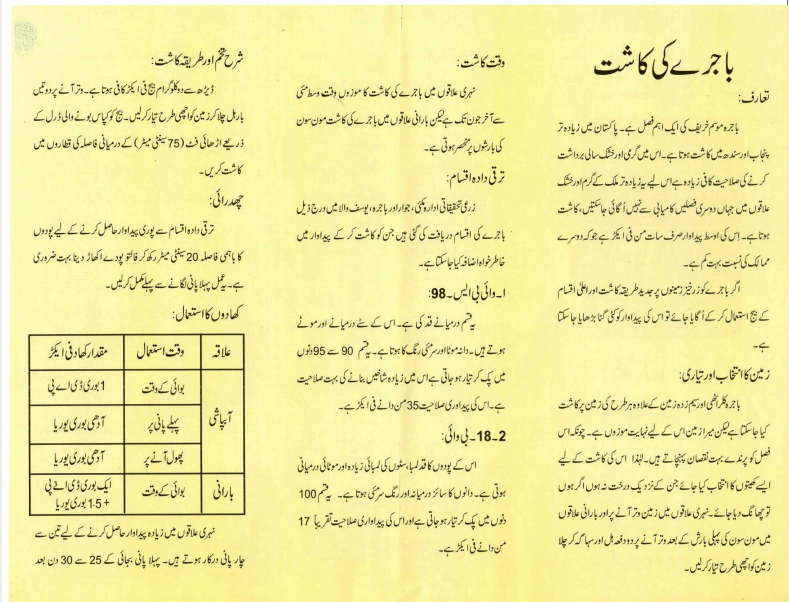 باجرے کی کاشت
تعارف:
باجرہ موسم خریف کی ایک اہم فصل ہے۔ پاکستان میں زیادہ تر
پنجاب اور سندھ میں کاشت ہوتا ہے۔ اس میں گرمی اور خشک سالی برداشت
کرنے کی صلاحیت کافی زیادہ ہے اس لیے یہ زیادہ تر ملک کے گرم اور خشک
علاقوں میں جہاں دوسری فصلیں کامیابی سے نہیں اُگائی جاسکتیں، کاشت
ہوتا ہے۔ اس کی اوسط پیداوار صرف سات من فی ایکڑ ہے جو کہ دوسرے
ممالک کی نسبت بہت کم ہے۔
اگر باجرے کو زرخیز زمینوں پر جدید طریقہ کاشت اور اعلیٰ اقسام
کے بیج استعمال کر کے اُگایا جائے تو اس کی پیداوار کو کئی گنا بڑھایا جا سکتا
ہے۔
زمین کا انتخاب اور تیاری:
باجرہ کلراٹھی اور سیم زدہ زمین کے علاوہ ہر طرح کی زمین پر کاشت
کیا جاسکتا ہے لیکن میرا زمین اس کے لیے نہایت موزوں ہے۔ چونکہ اس
فصل کو پرندے بہت نقصان پہنچاتے ہیں۔ لہٰذا اس کی کاشت کے لیے
ایسے کھیتوں کا انتخاب کیا جائے جن کے نزدیک درخت نہ ہوں اگر ہوں
تو چھانگ دیا جائے۔ نہری علاقوں میں زمین وتر آنے پر اور بارانی علاقوں
میں مون سون کی پہلی بارش کے بعد وتر آنے پر دو دفعہ ہل اور سہاگہ کر چلا
زمین کو اچھی طرح تیار کرلیں۔
وقت کاشت:
نہری علاقوں میں باجرے کی کاشت کا موزوں وقت وسط مئی
سے آخر جون تک ہے لیکن بارانی علاقوں میں باجرے کی کاشت مون سون
کی بارشوں پر منحصر ہوتی ہے۔
ترقی دادہ اقسام:
زرعی تحقیقاتی ادارہ مکئی، جوار اور باجرہ، یوسف والا میں درج ذیل
باجرے کی اقسام دریافت کی گئی ہیں جن کو کاشت کر کے پیداوار میں
خاطر خواہ اضافہ کیا جاسکتا ہے۔
۱۔ وائی بی ایس۔98:
یہ قسم درمیانے قد کی ہے۔ اس کے سٹے درمیانے اور موٹے
ہوتے ہیں۔ دانہ موٹا اور سرمئی رنگ کا ہوتا ہے۔ یہ قسم 90 سے 95 دنوں
میں پک کر تیار ہو جاتی ہے اس میں زیادہ شاخیں بنانے کی بہت صلاحیت
ہے۔ اس کی پیداواری صلاحیت 35 من دانے فی ایکڑ ہے۔
2۔ 18۔ بی وائی:
اس کے پودوں کا قد لمبا، سٹوں کی لمبائی زیادہ اور موٹائی درمیانی
ہوتی ہے۔ دانوں کا سائز درمیانہ اور رنگ سرمئی ہوتا ہے۔ یہ قسم 100
دنوں میں پک کر تیار ہو جاتی ہے اور اس کی پیداواری صلاحیت تقریباً 17
من دانے فی ایکڑ ہے۔
شرح تخم اور طریقہ کاشت:
ڈیڑھ سے دو کلو گرام بیج فی ایکڑ کافی ہوتا ہے۔ وتر آنے پر دو تین
بار ہل چلا کر زمین کو اچھی طرح تیار کرلیں۔ بیج کو کپاس بونے والی ڈرل کے
ذریعے اڑھائی فٹ (75 سینٹی میٹر) کے درمیانی فاصلہ کی قطاروں میں
کاشت کریں۔
چھدرائی:
ترقی دادہ اقسام سے پوری پیداوار حاصل کرنے کے لیے پودوں
کا باہمی فاصلہ 20 سینٹی میٹر رکھ کر فالتو پودے اکھاڑ دینا بہت ضروری
ہے۔ یہ عمل پہلا پانی لگانے سے پہلے مکمل کرلیں۔
کھادوں کا استعمال:
علاقہ وقت استعمال مقدار کھاد فی ایکڑ
آبپاشی بوائی کے وقت 1 بوری ڈی اے پی
پہلے پانی پر آدھی بوری یوریا
پھول آنے پر آدھی بوری یوریا
بارانی بوائی کے وقت ایک بوری ڈی اے پی
+ 1.5 بوری یوریا
نہری علاقوں میں زیادہ پیداوار حاصل کرنے کے لیے تین سے
چار پانی درکار ہوتے ہیں۔ پہلا پانی بیجائی کے 25 سے 30 دن بعد